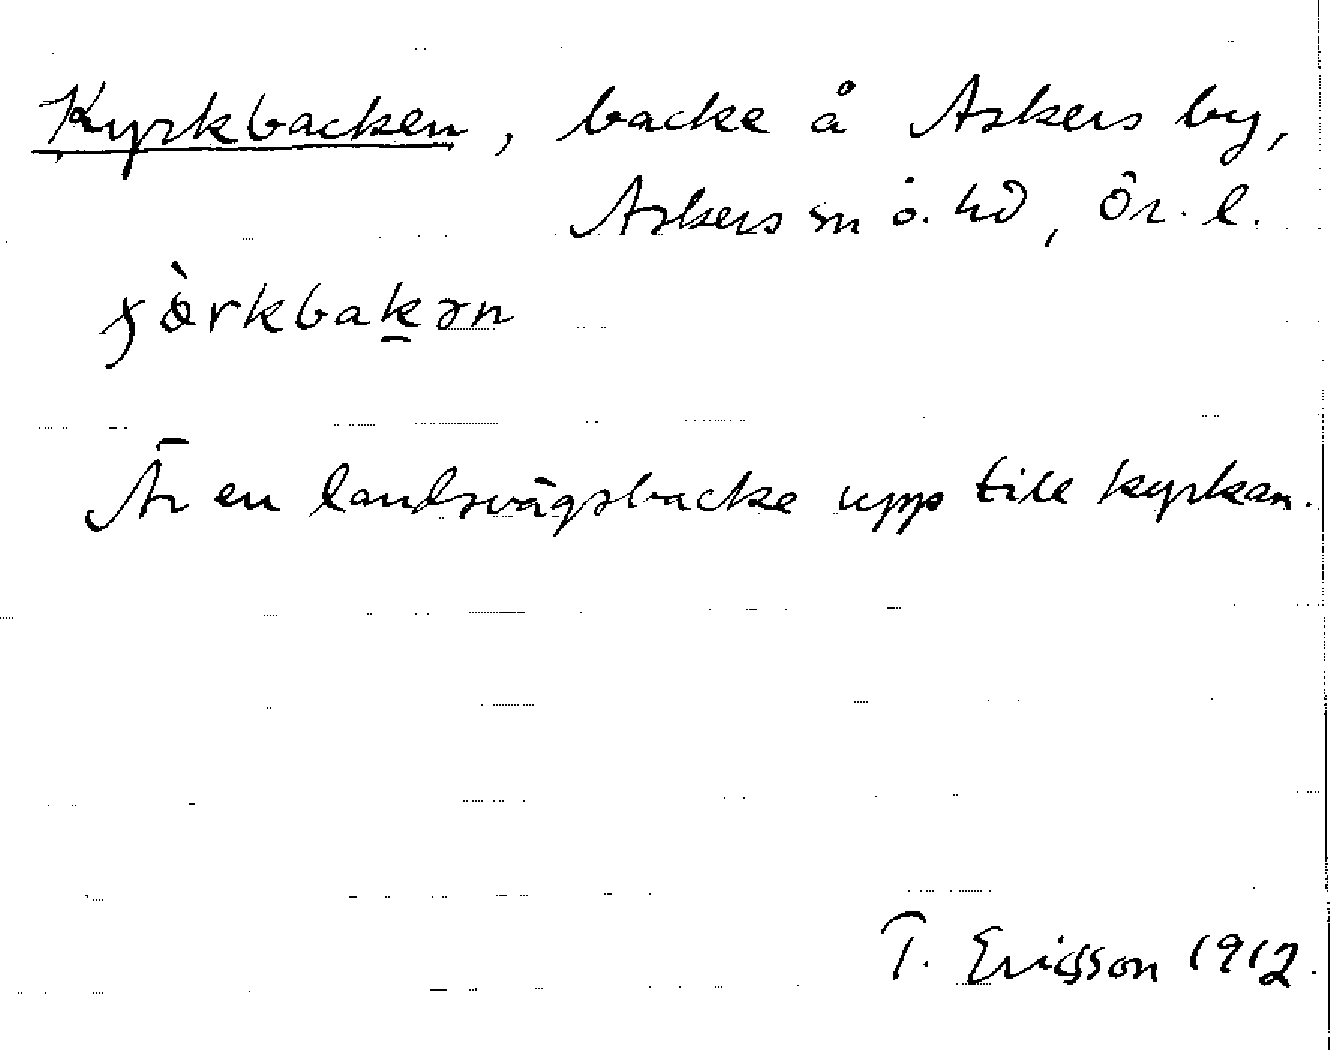 Kyrkbacken, backe å Askers by,
Askers sn o. hd, Ör. l.
Är en landsvägsbacke upp till kyrkan.
T. Ericsson 1912.